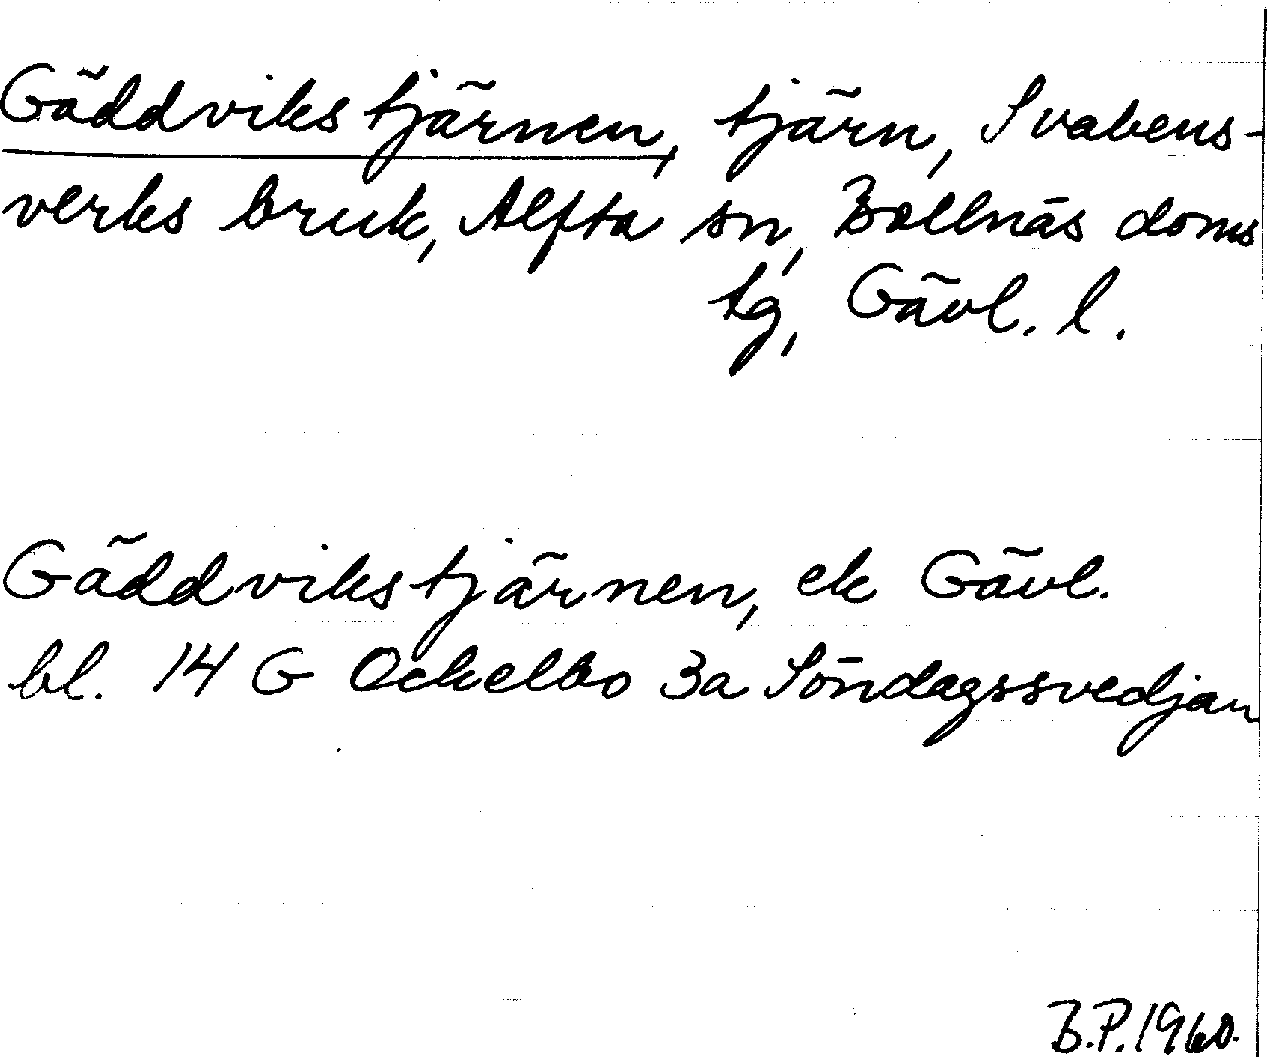 Gäddvikstjärnen, tjärn, Svabens-
verks bruk, Alfta sn, Bollnäs doms
tg, Gävl. l.
Gäddvikstjärnen, ek Gävl.
bl. 14 G Ockelbo 3a Söndagssvedjan
B.P. 1960.